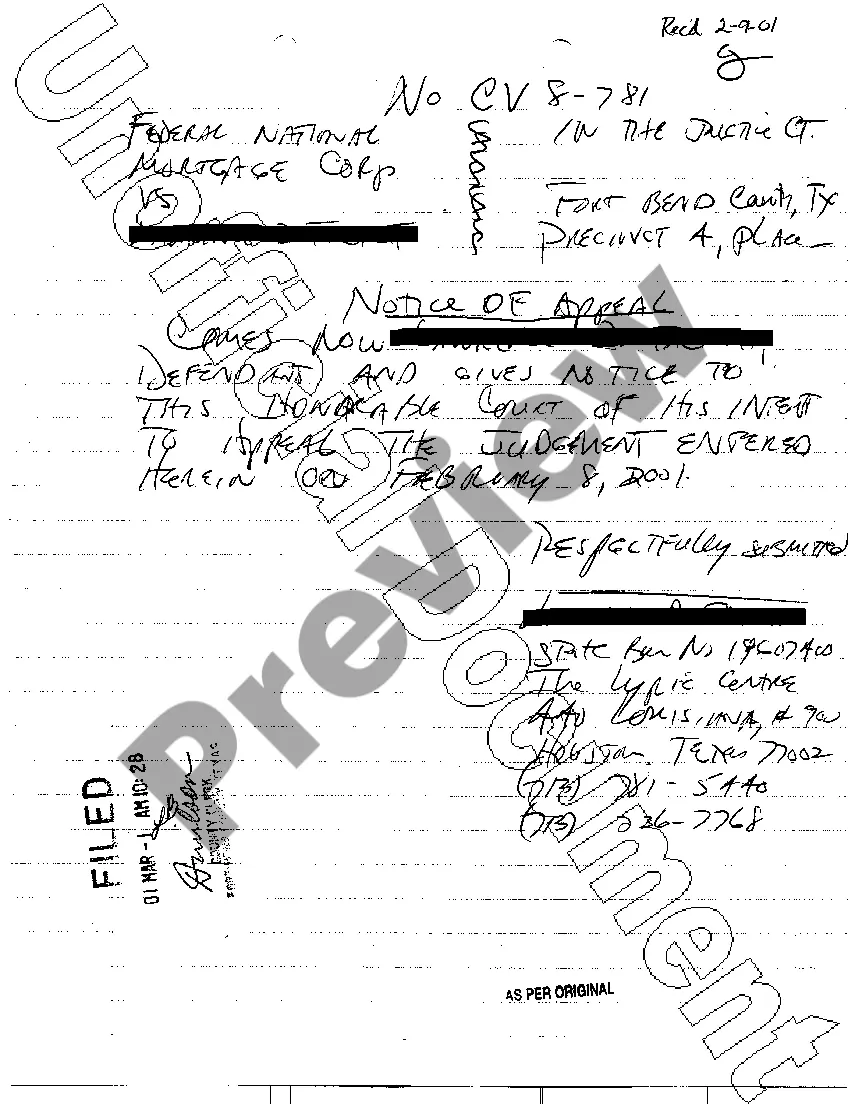 Rec'd 2-9-01
No CV 8-781
FEDERAL NATIONAL
MORTGAGE CORP
VS
IN THE JUSTICE CT.
FORT BEND COUNTY, TX
PRECINCT 4, PLACE
NOTICE OF APPEAL
COMES NOW
DEFENDANT AND GIVES NOTICE TO
THIS HONORABLE COURT OF HIS INTENT
TO APPEAL THE JUDGEMENT ENTERED
HEREIN ON FEBRUARY 8, 2001.
RESPECTFULLY SUBMITTED
STATE BAR No
The Lyric Centre
440 LOUISIANA, #
HOUSTON, TEXAS 77002
(713) 781-5440
(713) 236-7768
FILED
01 MAR -1 AM 10:28
COUNTY CLERK
AS PER ORIGINAL
Unofficial Document
Preview